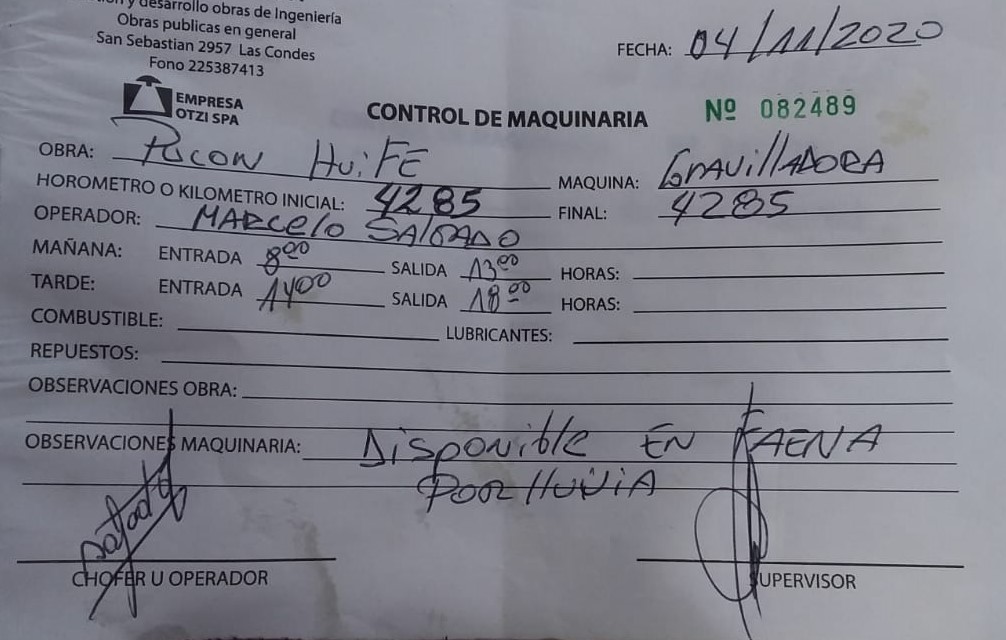 y desarrollo obras de Ingeniería
Obras publicas en general
San Sebastian 2957 Las Condes
Fono 225387413
FECHA: 04/11/2020
EMPRESA
OTZI SPA
CONTROL DE MAQUINARIA
Nº 082489
OBRA: Pucon HuiFE
MAQUINA: GRAVILLADORA
HOROMETRO O KILOMETRO INICIAL: 4285
FINAL: 4285
OPERADOR: MARCelo SALGADO
MAÑANA: ENTRADA 8:00 SALIDA 13:00 HORAS:
TARDE: ENTRADA 1400 SALIDA 18:00 HORAS:
COMBUSTIBLE: LUBRICANTES:
REPUESTOS:
OBSERVACIONES OBRA:
OBSERVACIONES MAQUINARIA: Disponible EN FAENA
POR lluviA
CHOFER U OPERADOR
SUPERVISOR